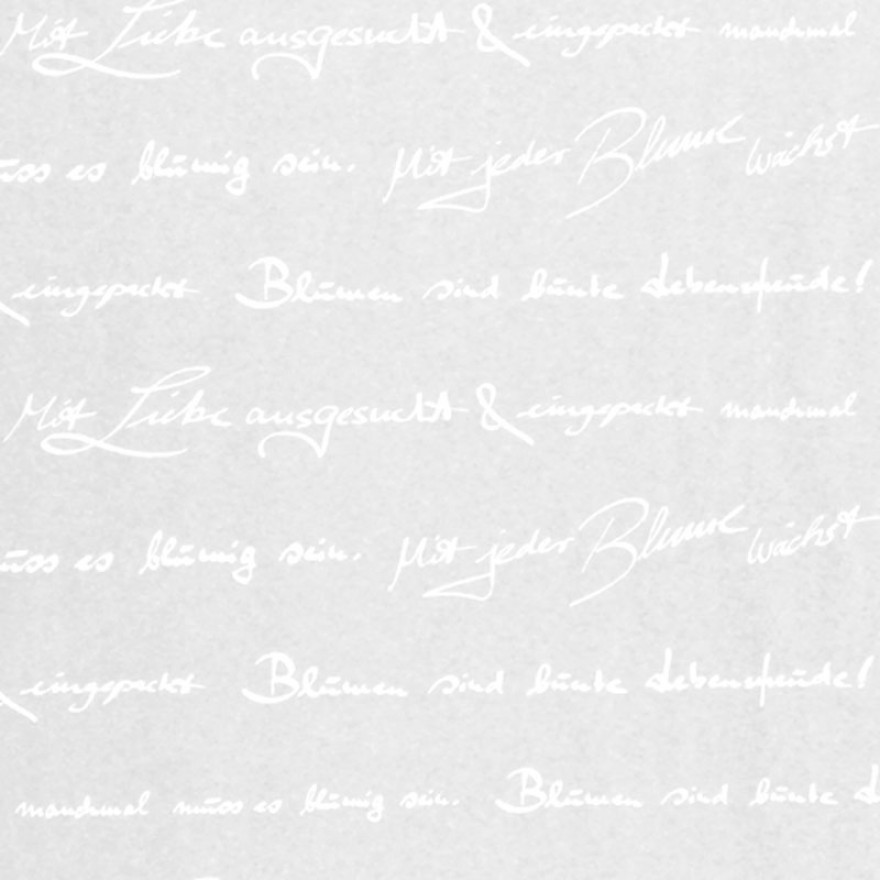 Mit Liebe ausgesucht & eingepackt manchmal
uss es blumig sein. Mit jeder Blume wächst
eingepackt Blumen sind bunte Lebensfreude!
Mit Liebe ausgesucht & eingepackt manchmal
uss es blumig sein. Mit jeder Blume wächst
eingepackt Blumen sind bunte Lebensfreude!
manchmal muss es blumig sein. Blumen sind bunte